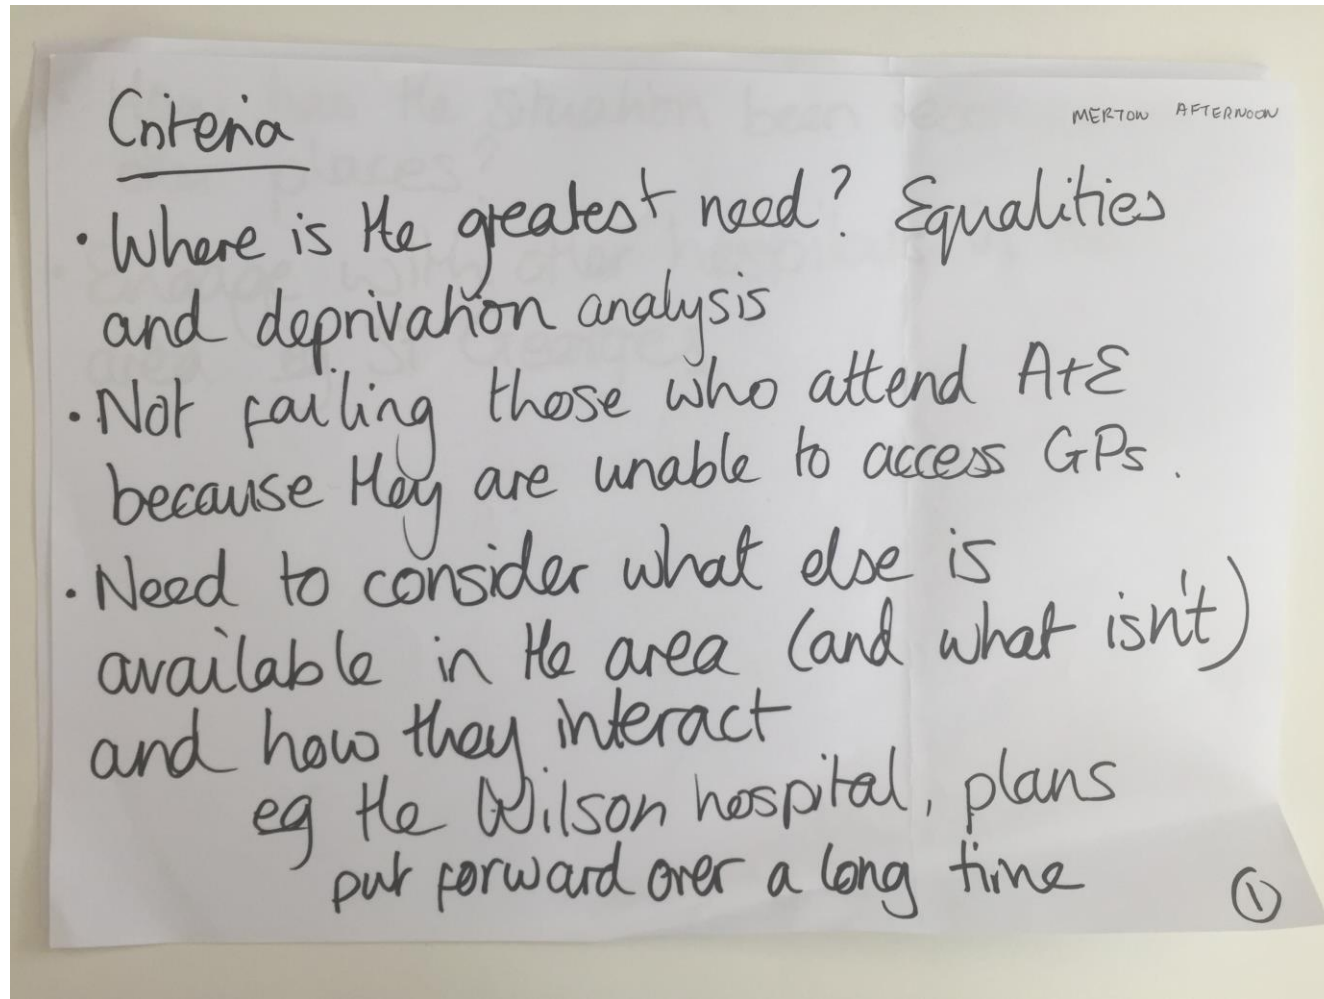 MERTON AFTERNOON
Criteria
• Where is the greatest need? Equalities
and deprivation analysis
• Not failing those who attend A+E
because they are unable to access GPs.
• Need to consider what else is
available in the area (and what isn't)
and how they interact
eg the Wilson hospital, plans
put forward over a long time
①